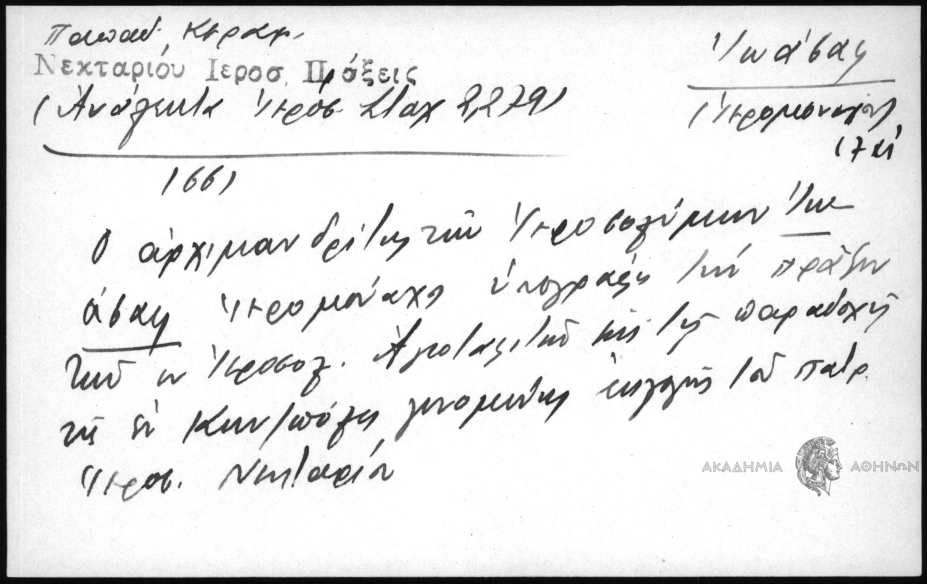 Παπαδ. Κεραμ.
Νεκταρίου Ιεροσ. Πράξεις
(Ἀνάλεκτα Ἱεροσ. Σταχ 2,279)
Ἰωάσαφ
(ἱερομόναχος)
17 αἰ
1661
Ὁ ἀρχιμανδρίτης τῶν Ἱεροσολύμων Ἰω-
άσαφ ἱερομόναχος ὑπογράφει τὴν πρᾶξιν
τῶν ἐν Ἱεροσολ. τῆς παραδοχῆς
τῆς ἐν Κων/πόλει γενομένης ἐκλογῆς τοῦ πατρ.
Ἱεροσ. Νεκταρίου
ΑΚΑΔΗΜΙΑ ΑΘΗΝΩΝ